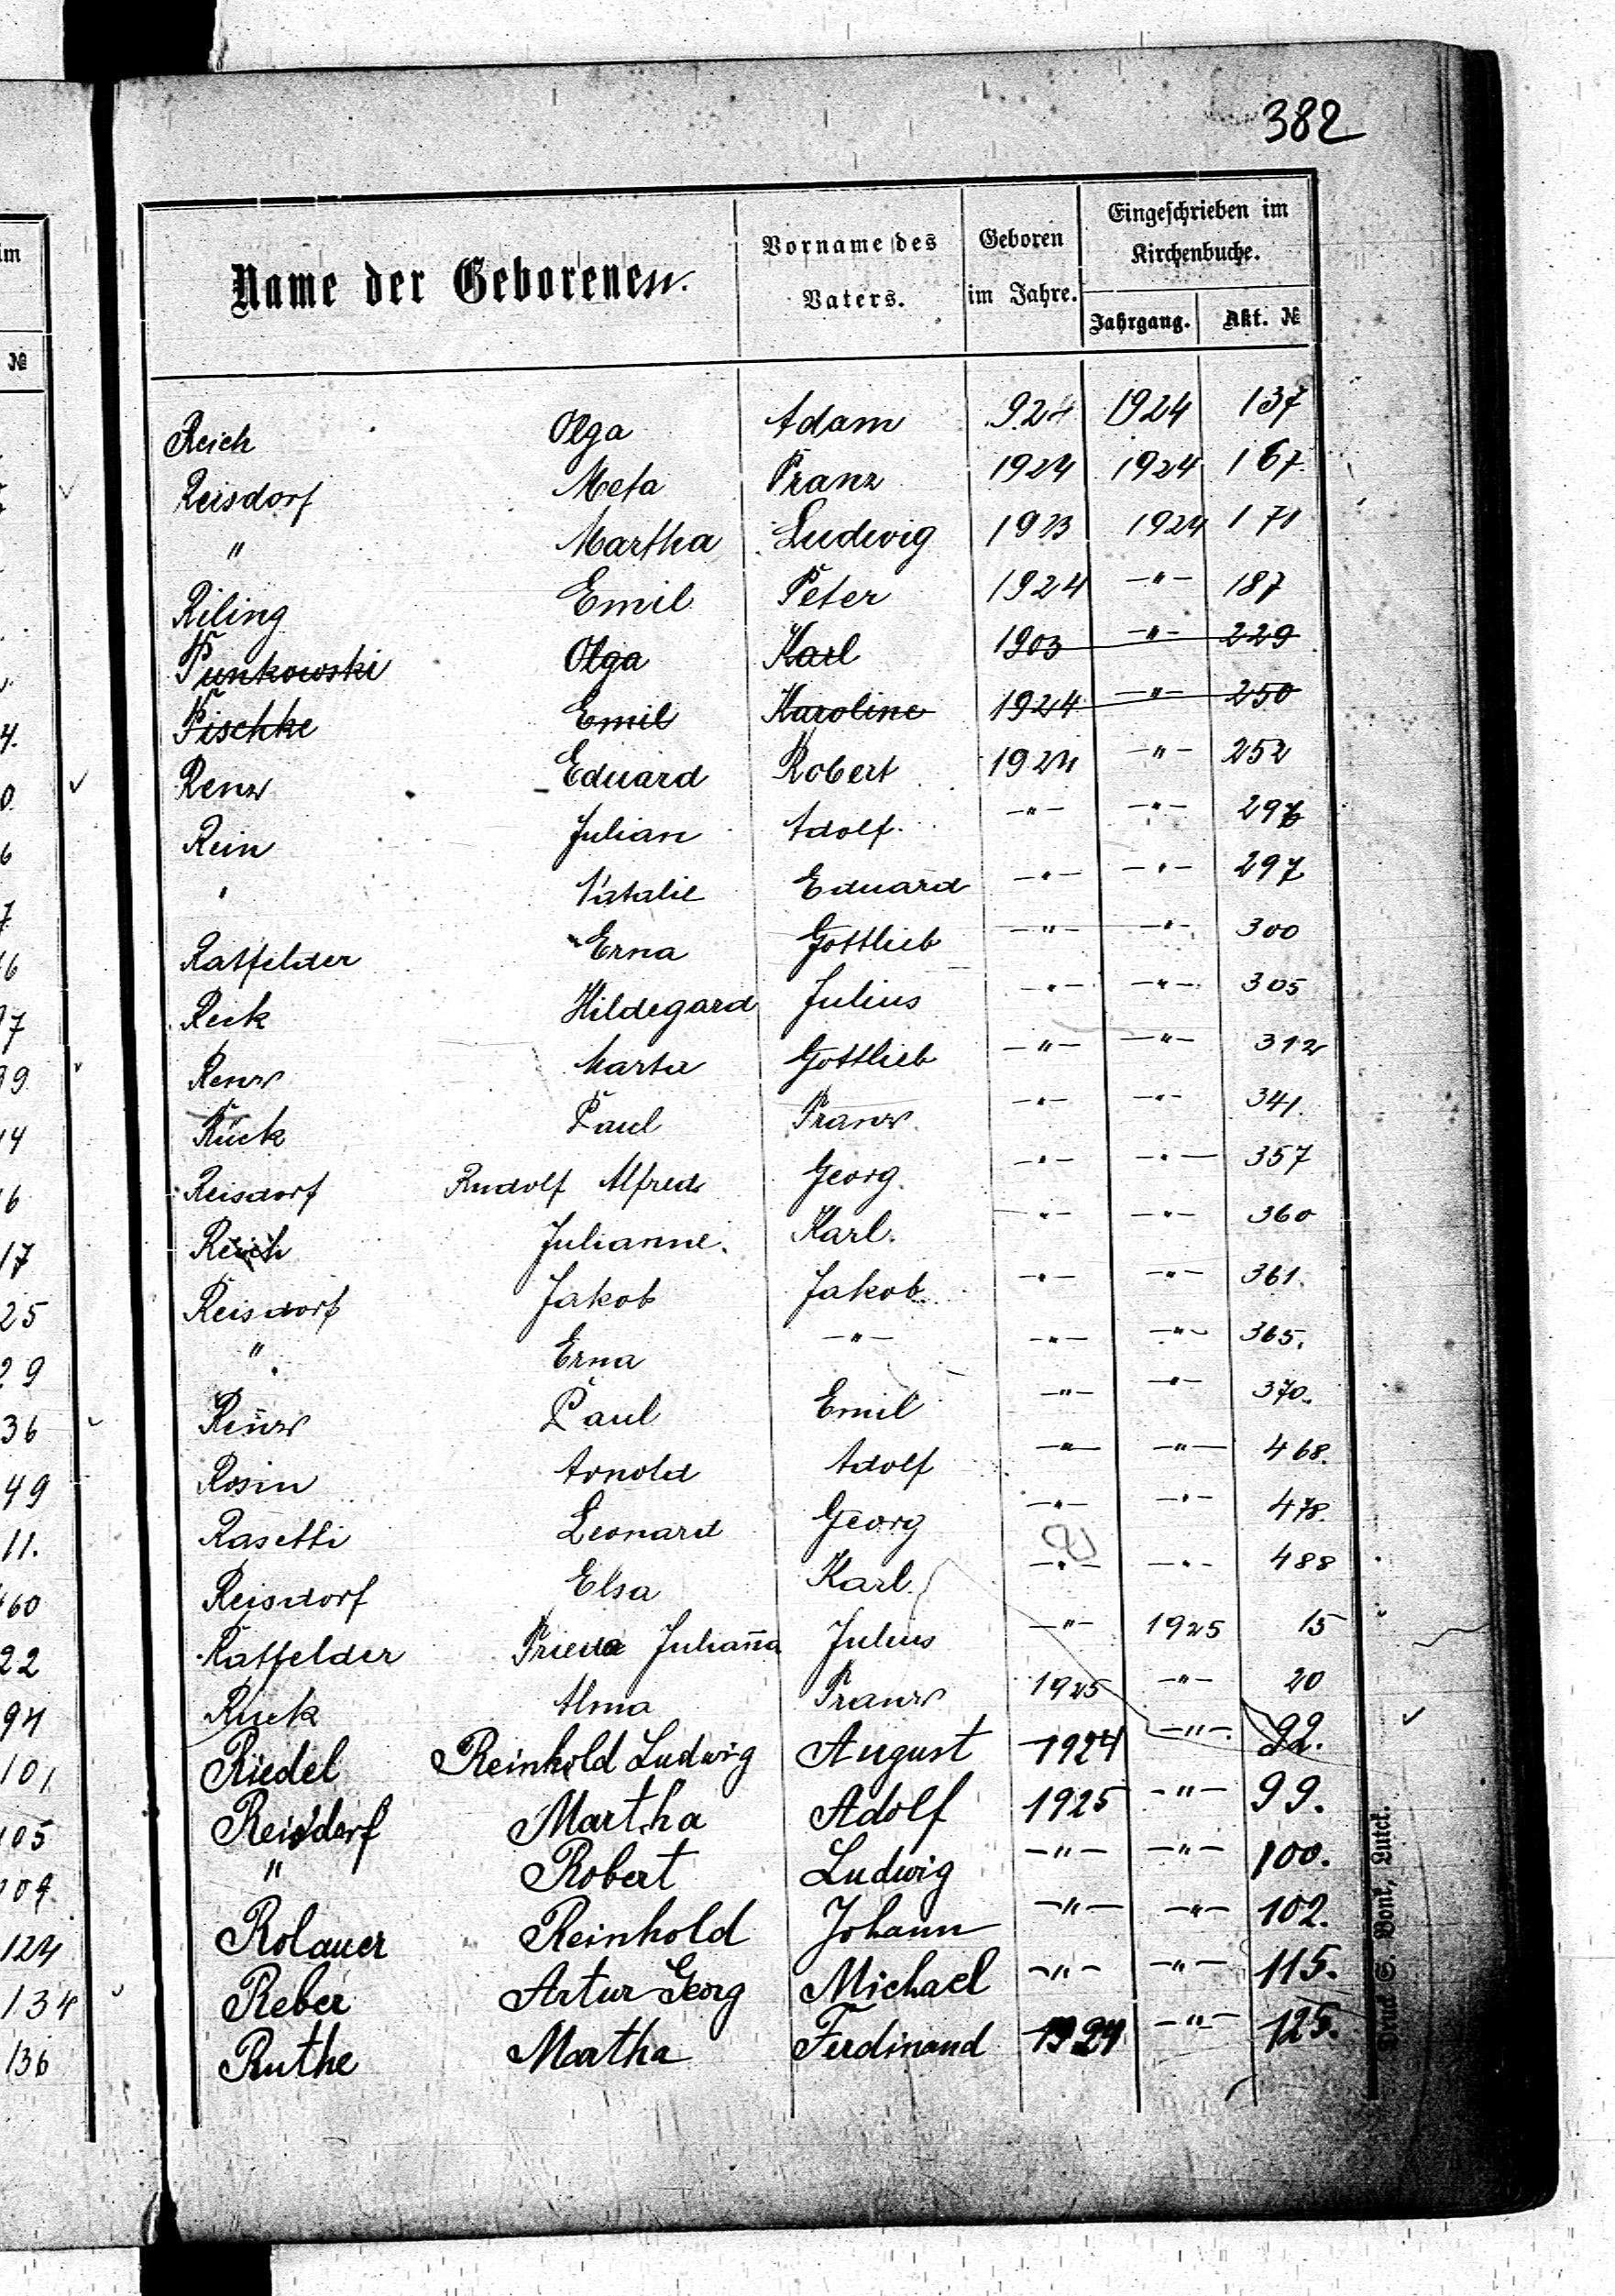 382
Name der Geborenen.
Vorname des Vaters.
Geboren im Jahre.
Eingeschrieben im Kirchenbuche.
Jahrgang. Akt. №
Reich Olga Adam 924 1924 137
Reisdorf Meta Franz 1924 1924 167.
" Martha Ludwig 1923 1924 171
Riling Emil Peter 1924 —"— 187
Punkowski Olga Karl 1903 —"— 229
Pischke Emil Karoline 1924 —"— 250
Renz Eduard Robert 1924 —"— 252
Rein Julian Adolf. —"— —"— 296
" Natalie Eduard —"— —"— 297
Ratfelder Erna Gottlieb —"— —"— 300
Reik Hildegard Julius —"— —"— 305
Renz Marta Gottlieb —"— —"— 312
Rück Paul Franz. —"— —"— 341.
Reisdorf Rudolf Alfred Georg. —"— —"— 357
Reich Julianne. Karl. —"— —"— 360
Reisdorf Jakob Jakob —"— —"— 361.
" Erna —"— —"— —"— 365.
Renz Paul Emil —"— —"— 370.
Rosin Arnold Adolf —"— —"— 468.
Rasetti Leonard Georg —"— —"— 478.
Reisdorf Elsa Karl. —"— —"— 488
Ratfelder Frieda Julian̄a Julius —"— 1925 15
Ruck Alma Franz 1925 —"— 20
Riedel Reinhold Ludwig August 1924 —"— 92.
Reisdorf Martha Adolf 1925 —"— 99.
" Robert Ludwig —"— —"— 100.
Rolauer Reinhold Johann —"— —"— 102.
Reber Artur Georg Michael —"— —"— 115.
Ruthe Martha Ferdinand 1924 —"— 125.
im
№
4.
0.
6
7
16
97
99
14
16
17
25
29
36
49
11.
460
22
94
101
105
109.
124
134
136